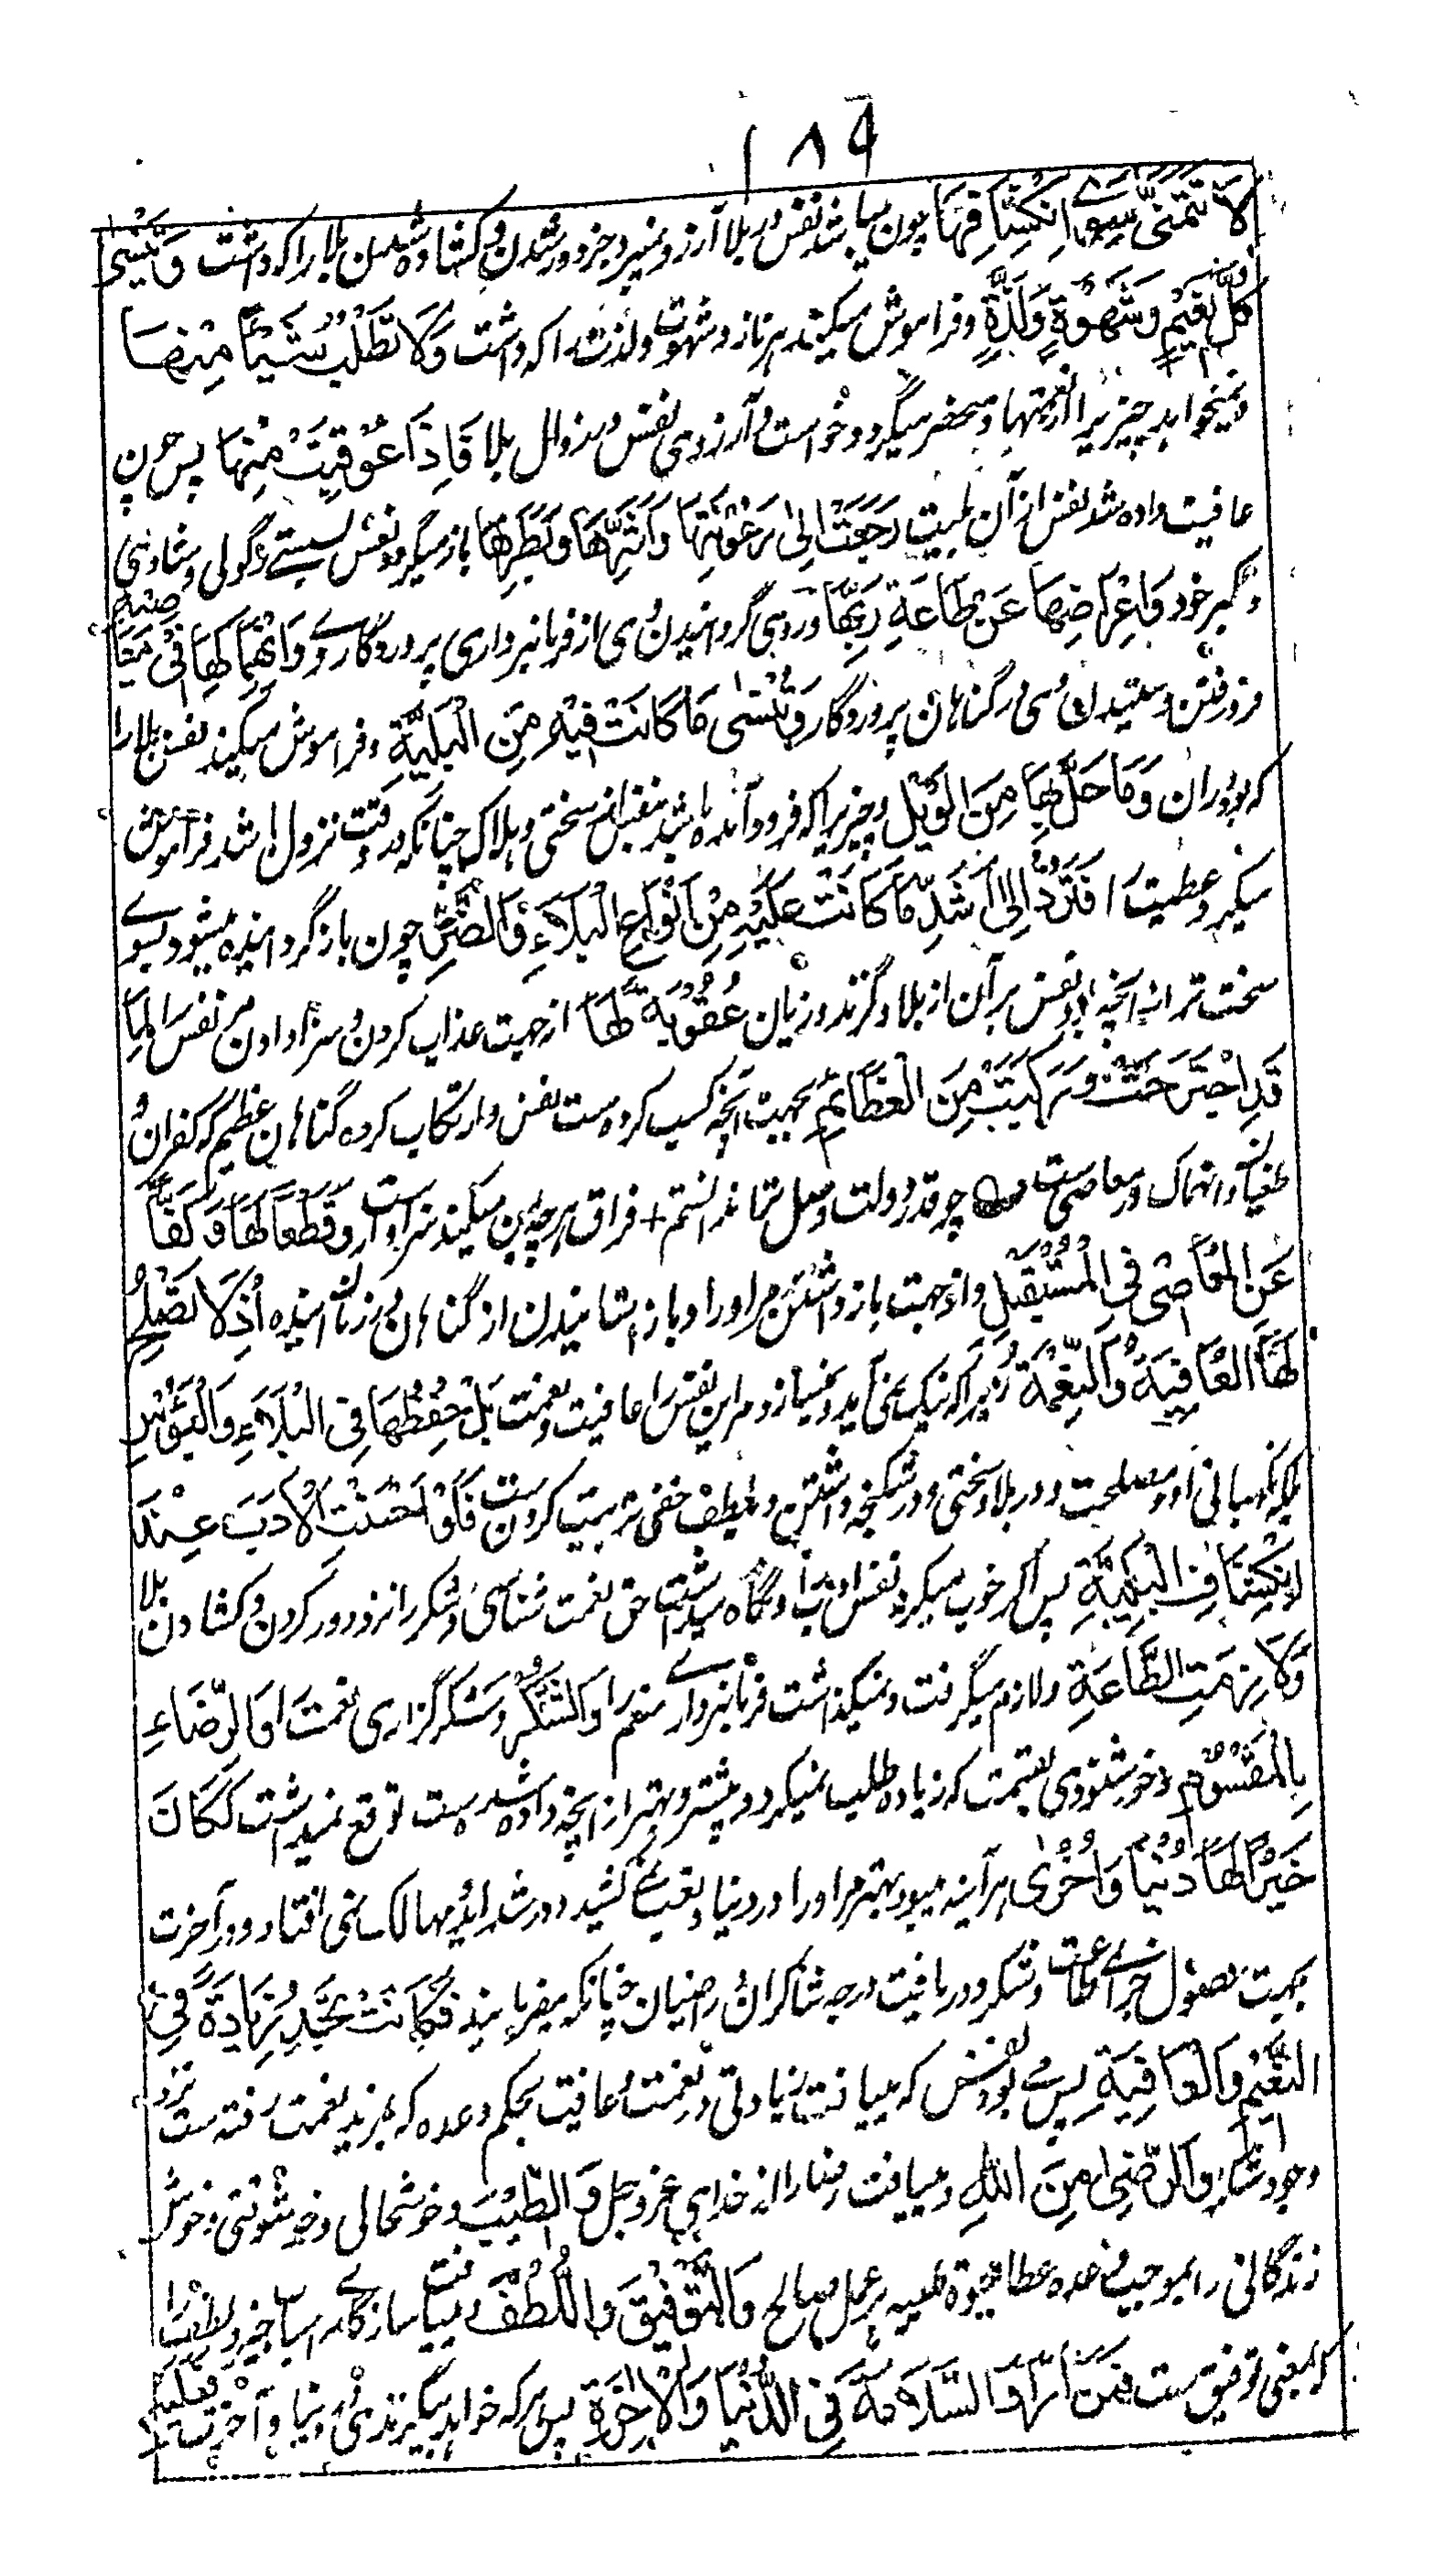 ۱۸۹
لَا تَتَمَنّٰی سِوَی انْکِشَافِهَا چون میباشد نفس در بلا آرزو نمیبرد جز دور شدن و کشاده شدن بلا را که داشت وَ تَنْسٰی
کُلَّ نَعِیْمٍ وَ شَهْوَةٍ وَ لَذَّةٍ و فراموش میکند هر ناز و شهوت و لذت را که داشت وَ لَا تَطْلُبُ شَیْئًا مِنْهَا
و نمیخواهد چیزیرا از نعمتها و منحصر میگردد خواست و آرزوی نفس در زوال بلا فَاِذَا عُوْفِیَتْ مِنْهَا پس چون
عافیت داده شد نفس از آن بلیت رَجَعَتْ اِلٰی رَعُوْنَتِهَا وَ اَشَرِهَا وَ بَطَرِهَا باز میگردد نفس بسستے و گولی و شادی
و کبر خود وَ اِعْرَاضِهَا عَنْ طَاعَةِ رَبِّهَا و روی گردانیدن وی از فرمانبرداری پروردگار وے وَ انْهِمَاکِهَا فِیْ مَعَاصِیْهِ
فرو رفتن و ستیدن وی در گناهان پروردگار وَ تَنْسٰی مَا کَانَتْ فِیْهِ مِنَ الْبَلِیَّةِ و فراموش میکند نفس بلا را
که بود در آن وَ مَا حَلَّ بِهَا مِنَ الْوَیْلِ و چیزیرا که فرود آمده باشد بنفس از سختی و هلاک چنانکه در وقت نزول بلا شد فراموش
میکرد عطیت را فَتُرَدُّ اِلٰی اَشَدِّ مَا کَانَتْ عَلَیْهِ مِنْ اَنْوَاعِ الْبَلَاءِ وَ الضُّرِّ چون باز گردانیده میشود بسوے
سخت تر از آنچه بود نفس بر آن از بلا و گزند و زیان عُقُوْبَةً لَهَا از جهت عذاب کردن و سزا دادن مر نفس را لِمَا
قَدِ اجْتَرَحَتْ وَ رَکِبَتْ مِنَ الْعَظَائِمِ بجهت آنچه کسب کرده ست نفس و ارتکاب کرده گناهان عظیم که کفران و
طغیان و انهماک در معاصی ست چو قدر دولت وصل شما ندانستم + فراق هر چه بمن میکند سزاوارست وَ قَطْعًا لَهَا وَ کَفًّا
عَنِ الْمَعَاصِیْ فِی الْمُسْتَقْبِلِ و از جهت باز داشتن مر او را و باز ایستانیدن از گناهان در زمان آینده اِذْ لَا تَصْلُحُ
لَهَا الْعَافِیَةُ وَ النِّعْمَةُ زیرا که نیک نمی آید و نمیسازد مر این نفس را عافیت و نعمت بَلْ حِفْظُهَا فِی الْبَلَاءِ وَ الْبُؤْسِ
بلکه نگهبانی او و مصلحت در بلا و سختی و در شکنجه داشتن و بلطف خفی تربیت کردن ست فَلَوْ اَحْسَنَتِ الْاَدَبَ عِنْدَ
انْکِشَافِ الْبَلِیَّةِ پس اگر خوب میکرد نفس ادب را و نگاه میداشت حق نعمت شناسی و شکر را نزد دور کردن و کشادن بلا
وَ لَازَمَتِ الطَّاعَةَ و لازم میگرفت و نمیگذاشت فرمانبرداری منعم را وَ الشُّکْرَ و شکر گزاری نعمت را وَ الرِّضَاءَ
بِالْمَقْسُوْمِ و خوشنودی بقسمت که زیاده طلب نمیکرد و بیشتر و بهتر از آنچه داده شده ست توقع نمیداشت لَکَانَ
خَیْرًا لَهَا دُنْیَا وَ اُخْرٰی هر آینه میبود بهتر مر او را در دنیا و عقبے کشید و در شداید و مهالک نمی افتاد و در آخرت
بجهت حصول جزاے طاعت و شکر و دریافت درجه شاکران و راضیان چنانکه میفرمایند فَکَانَتْ تَجِدُ زِیَادَةً فِی
النَّعِیْمِ وَ الْعَافِیَةِ پس مے بود نفس که مییافت زیادتی در نعمت و عافیت بحکم وعده که بمزید نعمت رفته ست نزد
وجود شکر وَ الرِّضٰی مِنَ اللّٰهِ و مییافت رضا را از خدای عز و جل وَ الطِّیْبَ و خوشحالی و خوشوقتی و خوش
زندگانی را بموجب وعده عطا حیوة طیبه بر عمل صالح وَ التَّوْفِیْقَ وَ اللُّطْفَ و مییافت سازگاری اسباب خیر و لطف را
که بمعنی توفیق ست فَمَنْ اَرَادَ السَّلَامَةَ فِی الدُّنْیَا وَ الْاٰخِرَةِ پس هر که خواهد بیگزندی در دنیا و آخرت فَعَلَیْهِ